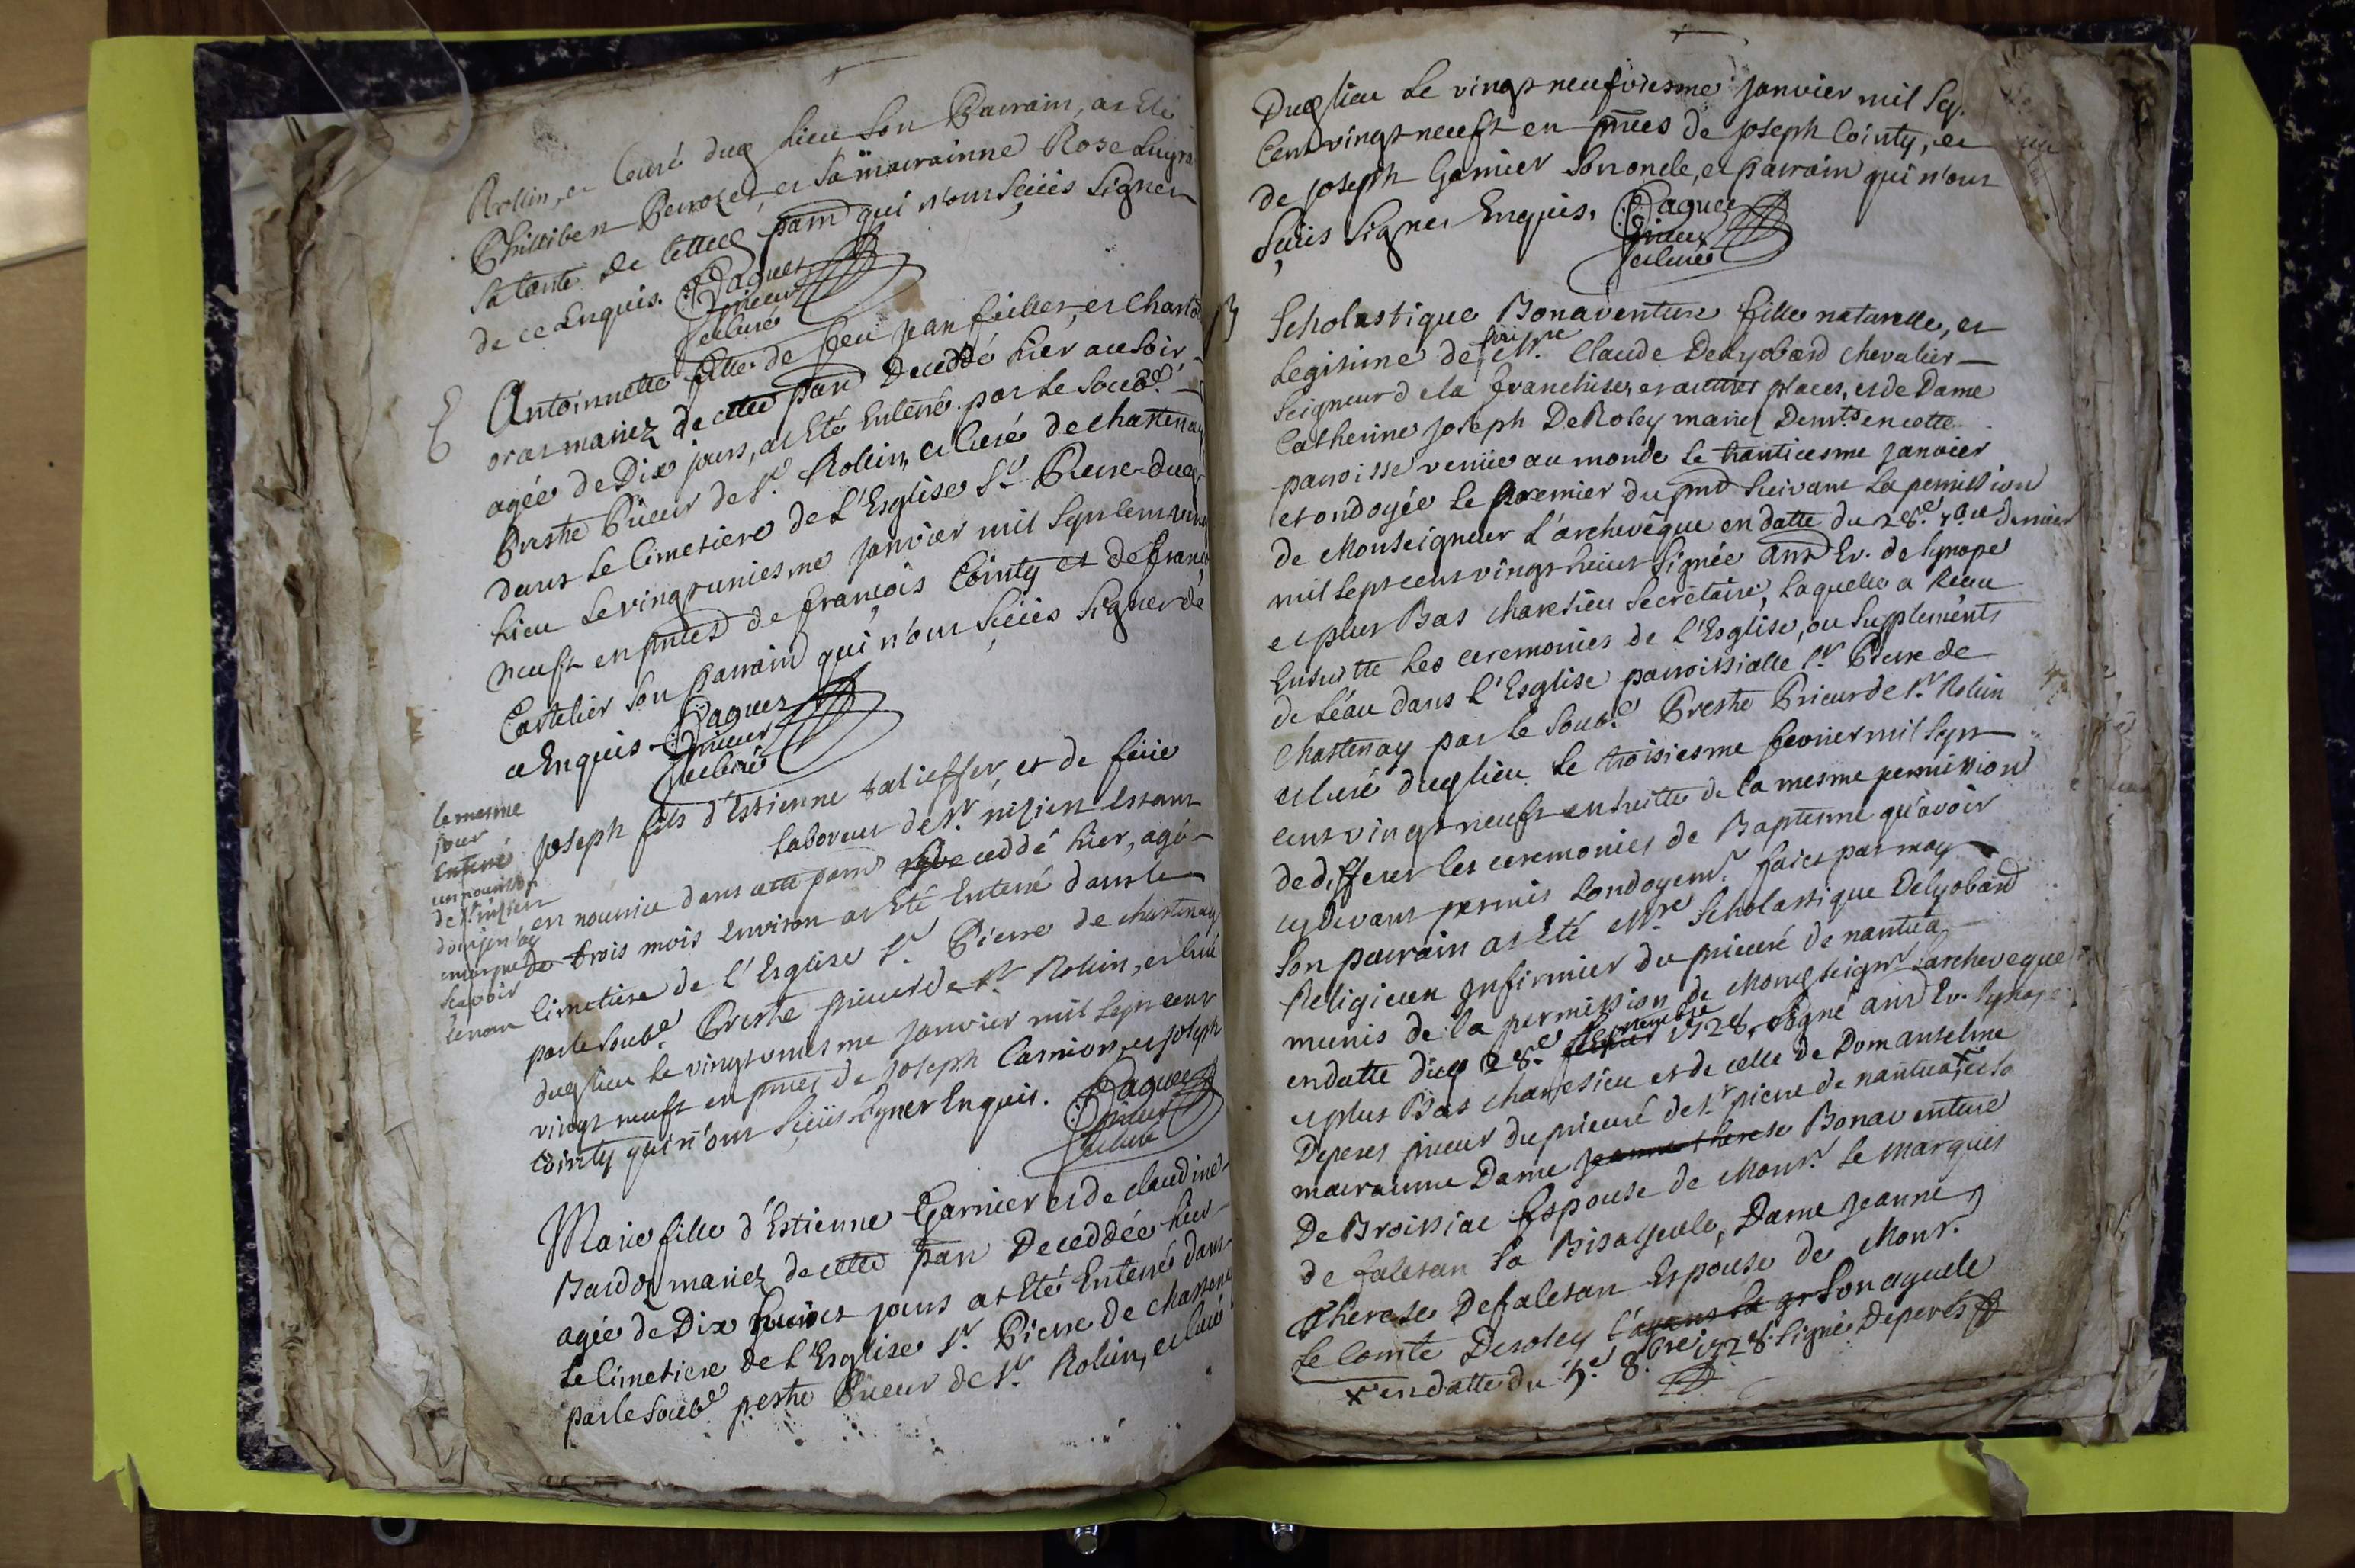 Rollin, et Curé dud lieu son Parrain, at Eté
Philliben Perrozet, et sa marrainne Rose
sa tante de cette parr qui n'ont sceüs signer
de ce Enquis. Paguet
prieur
et curé
E
Antoinnette fille de feu jean feillet, et
mariez de cette parr Deceddé hier au soir
agée de Dix jours, at Eté Enterré par le Soub.é
Prestre Prieur de St. Rollin, et Curé de chastenay
dans le Cimetiere de L'Esglise St. Pierre dud
Lieu le vingt uniesme janvier mil Sept cent vingt
neuft en pntes de françois Cointy et de
Cartelier son parrain qui n'ont sceüs signer de
ce Enquis. Paguet
prieur
et curé
le mesme
jour
Enterré
un nourisson
de St. nizier
le nom
joseph fils d'Estienne et de feüe
laboreur de St. nizier Estant
en nourrice dans cette parr Deceddé hier, agé
de trois mois Environ at Eté Enterré dans le
Cimetiere de l'Esglise St. Pierre de chastenay
par le Soub.é Prestre prieur de St. Rollin, et Curé
dud lieu le vingt uniesme janvier mil Sept cent
vingt neuft en pntes de joseph Carnion, et joseph
Cointy qui n'ont sceüs signer Enquis. Paguet
prieur
et curé
Marie fille d'Estienne Garnier et de claudine
Bardoz mariez de cette parr Deceddée hier
agée de Dix huict jours at Eté Enterré dans
Le Cimetiere de L'Esglise St. Pierre de chastenay
par le Soub.é prestre Prieur de St. Rollin, et Curé
Dud lieu Le vingt neufviesme janvier mil Sept
Cent vingt neuft en pntes de joseph Cointy, et
de joseph Garnier son oncle, et parrain qui n'ont
sceüs signer Enquis. Paguet
prieur
et curé
B
Scholastique Bonaventure fille naturelle, et
Legitime de Mre. Claude Delyobard chevalier
Seigneur de la franchise, et autres places, et de Dame
Catherine joseph De Roley mariez Demts en cette
parroisse venüe au monde le trantiesme janvier
et ondoyée le premier du pnt Suivant La permission
de Monseigneur L'archevêque en datte du 28.e 7bre dernier
mil sept cent vingt huict signée Ev. de Synope
et plus Bas chavesieu Secretaire, Laquelle a Receu
Ensuitte Les ceremonies de L'Esglise, ou Supplements
de L'éau dans L'Esglise parroissialle St. Pierre de
Chastenay par le Soub.é Prestre Prieur de St. Rolin
et Curé dud lieu le troisiesme fevrier mil Sept
cent vingt neuft en suitte de la mesme permission
de differer les ceremonies de Baptesme qu'avoir
cy devant permis Londoyemt. faict par moy
Son parrain at Eté Mre Scholastique Delyobard
Religieux Infirmier du prieuré de nantua
munis de la permission de Monseignr. Larcheveque
en datte dud 28.e septembre 1728, Signé Ev. Synope
et plus Bas chavesieu et de celle de Dom anselme
Deperes prieur du prieuré de St. pierre de nantua x, et sa
marrainne Dame jeanne therese Bonaventure
De Broissiac Espouse de Monsr. Le Marquis
de faletan sa Bisayeule, Dame jeanne
Therese Defaletan Espouse de Monsr.
Le Comte Deroley son ayeule
x en datte du 5.e 8.bre 1728. signé Deperés